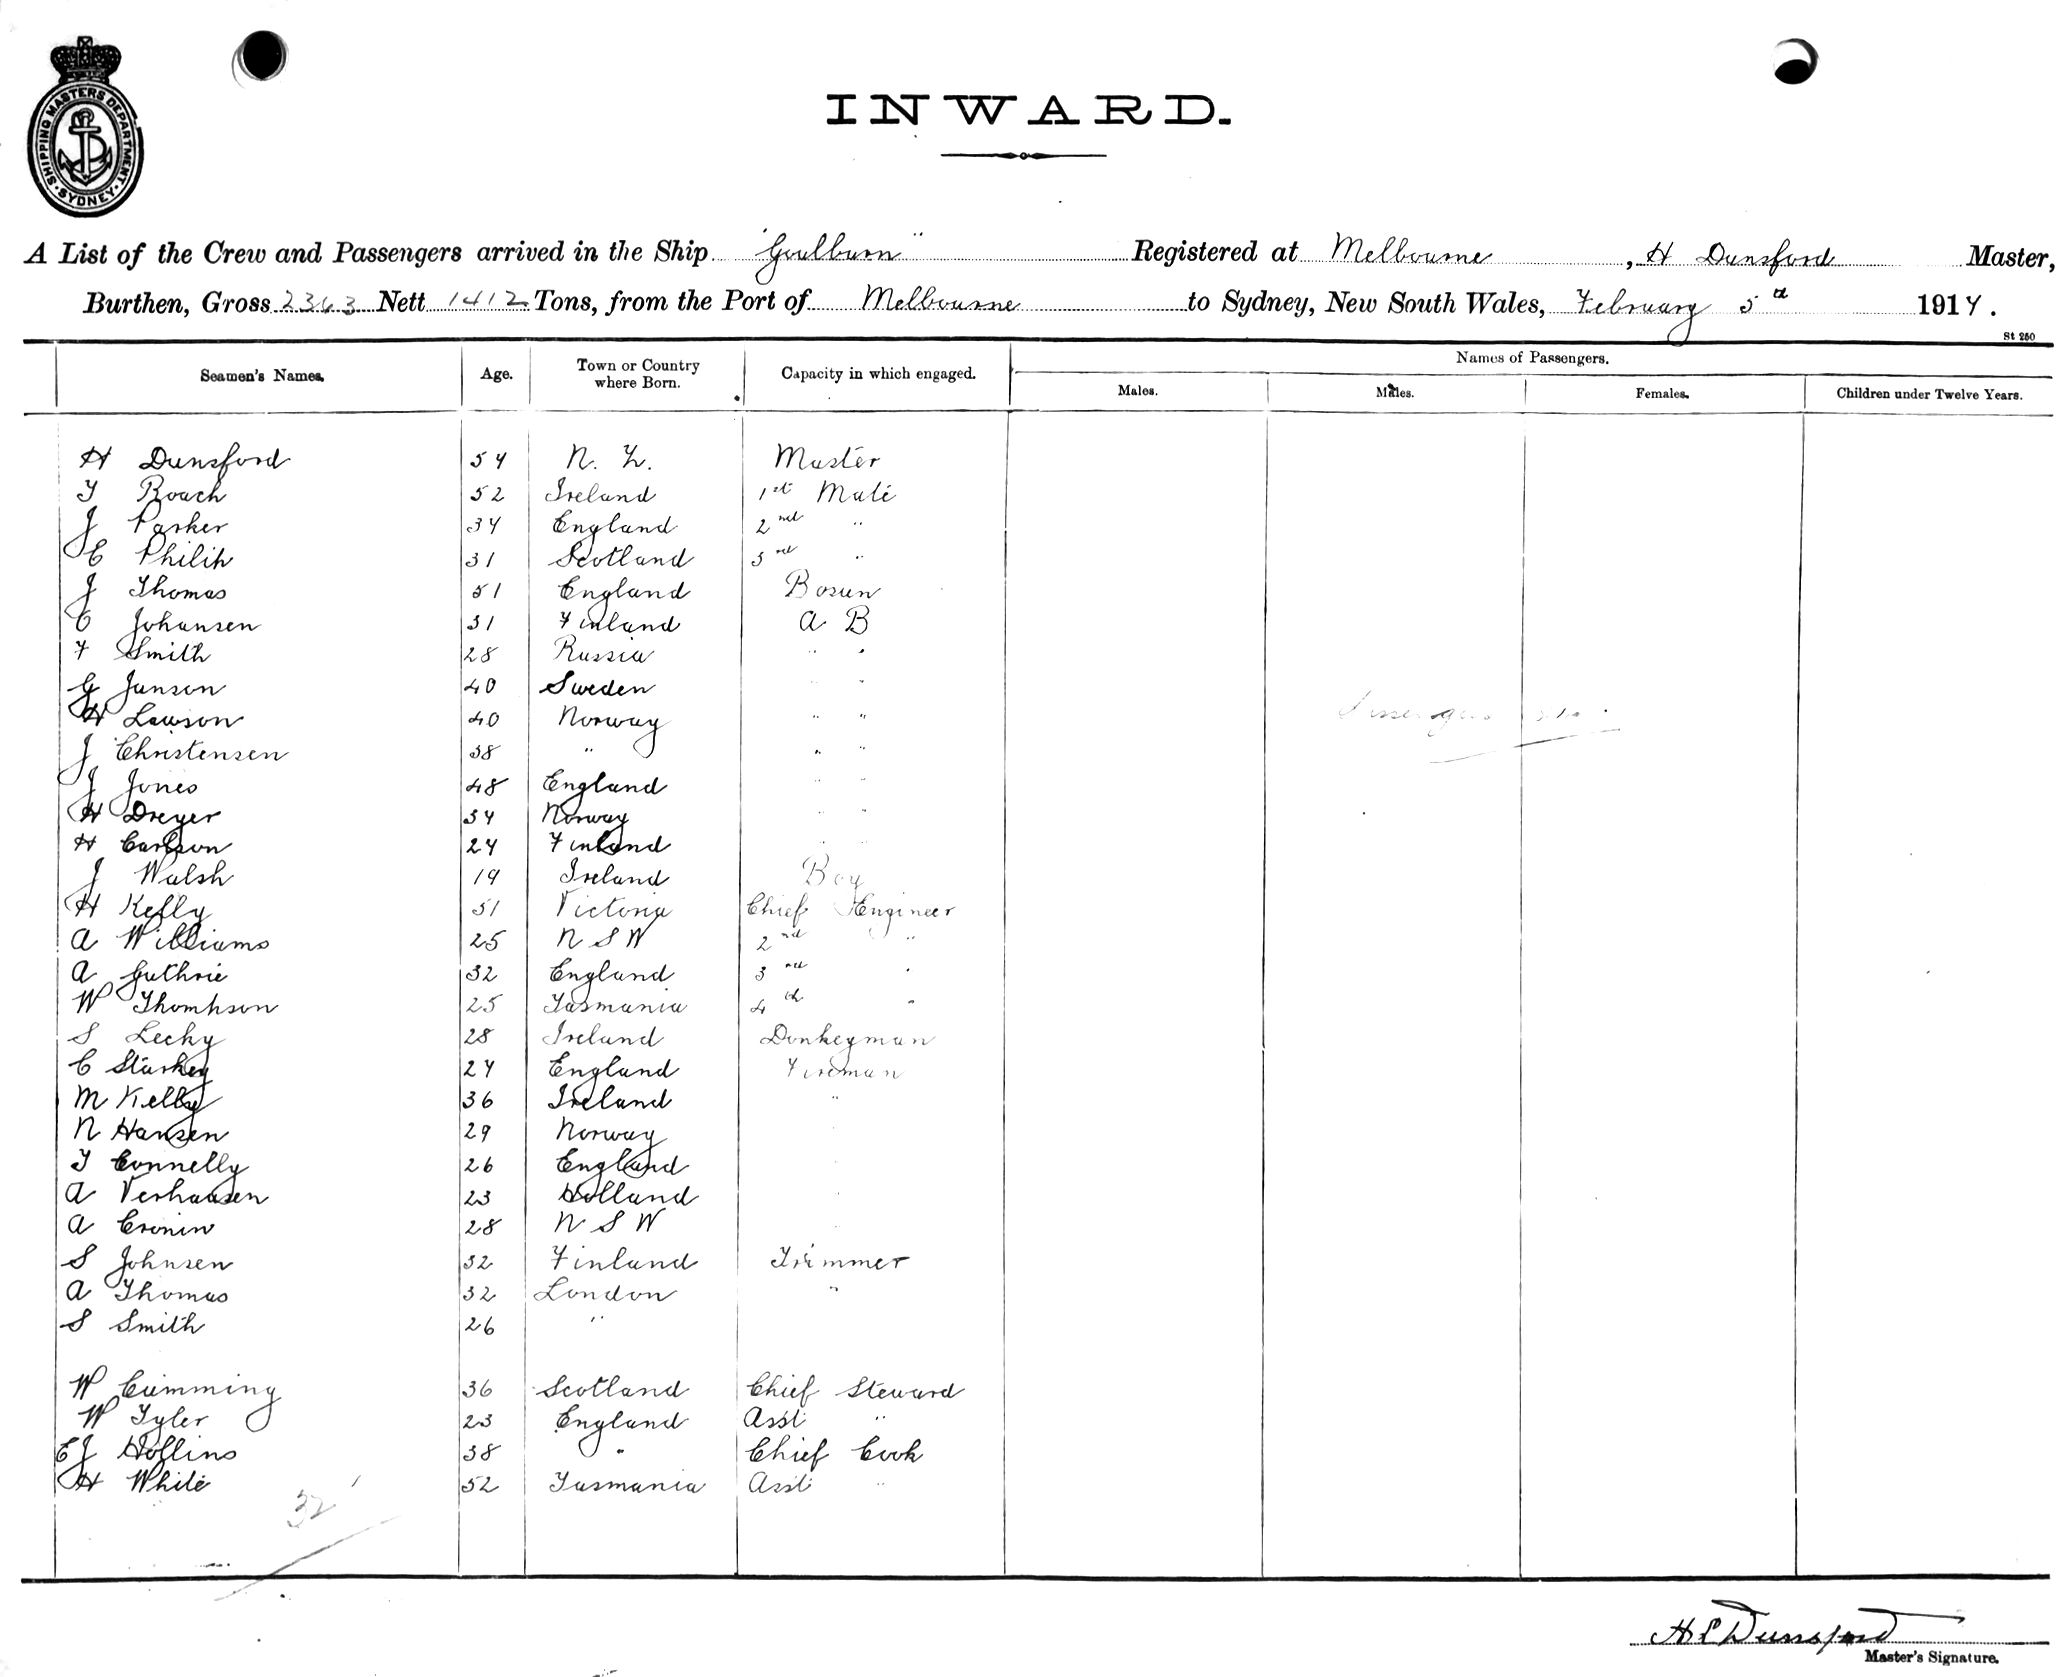 SHIPPING MASTERS DEPARTMENT
SYDNEY
INWARD.
A List of the Crew and Passengers arrived in the Ship "Goulburn" Registered at Melbourne, H Dunsford Master,
Burthen, Gross 2363 Nett 1412 Tons, from the Port of Melbourne to Sydney, New South Wales, February 5th 1914.
St 250
Seamen's Names. Age. Town or Country where Born. Capacity in which engaged. Names of Passengers.
Males. Males. Females. Children under Twelve Years.
H Dunsford 54 N. Z. Master
T Roach 52 Ireland 1st Mate
J Parker 34 England 2nd "
C Philip 31 Scotland 3rd "
J Thomas 51 England Bosun
C Johansen 31 Finland A B
F Smith 28 Russia " "
G Janson 40 Sweden " "
H Lawson 40 Norway " "
J Christensen 38 " " "
J Jones 48 England " "
H Dreyer 34 Norway " "
H Carlson 24 Finland " "
J Walsh 19 Ireland Boy
H Kelly 51 Victoria Chief Engineer
A Williams 25 N S W 2nd "
A Guthrie 32 England 3rd "
W Thompson 25 Tasmania 4th "
S Lecky 28 Ireland Donkeyman
C Starkey 24 England Fireman
M Kelly 36 Ireland "
N Hansen 29 Norway "
T Connelly 26 England "
A Verhausen 23 Holland "
A Cronin 28 N S W "
S Johnsen 32 Finland Trimmer
A Thomas 32 London "
S Smith 26 "
W Cumming 36 Scotland Chief Steward
W Tyler 23 England Asst "
E J Hollins 38 " Chief Cook
H White 52 Tasmania Asst "
32
H L Dunsford
Master's Signature.